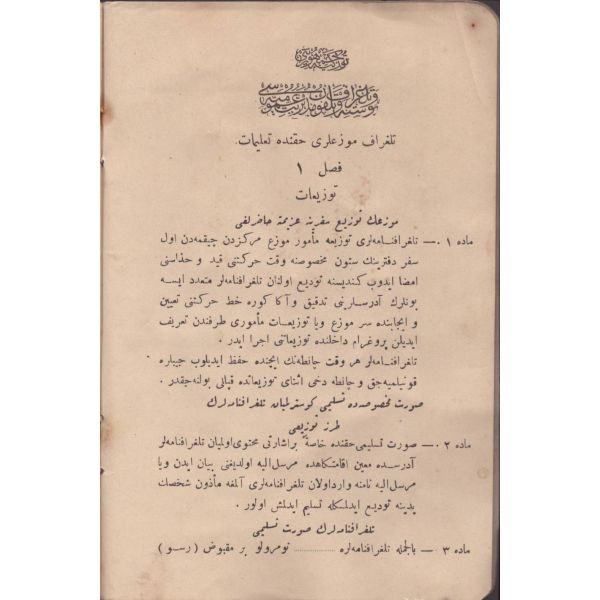 توركيه جمهوريتى
پوسته و تلغراف و تلفون مديريت عموميه سى
تلغراف موزعلرى حقنده تعليمات
فصل ١
توزيعات
موزعك توزيع سفرينه عزيمته حاضرلغى
ماده ١ — تلغرافنامه لرى توزيعه مأمور موزع مركزدن چيقمه دن اول
سفر دفترينك ستون مخصوصنه وقت حركتنى قيد و حذاسنى
امضا ايدوب كنديسنه توديع اولنان تلغرافنامه لر متعدد ايسه
بونلرك آدرسلرينى تدقيق و آكا كوره خط حركتنى تعيين
و ايجابنده سر موزع ويا توزيعات مأمورى طرفندن تعريف
ايديلن پروغرام داخلنده توزيعاتنى اجرا ايدر .
تلغرافنامه لر هر وقت چانطه نك ايچنده حفظ ايديلوب جيبلره
قونيلميه جق و چانطه دخى اثناى توزيعاتده قپالى بولنه جقدر .
صورت مخصوصه ده تسليمى كوسترلميان تلغرافنامه لرك
طرز توزيعى
ماده ٢ — صورت تسليمى حقنده خاصة بر اشارتى محتوى اولميان تلغرافنامه لر
آدرسده معين اقامتكاهده مرسل اليه اولديغنى بيان ايدن ويا
مرسل اليه نامنه وارد اولان تلغرافنامه لرى آلمغه مأذون شخصك
يدينه توديع ايدلمكله تسليم ايدلمش اولور .
تلغرافنامه لرك صورت تسليمى
ماده ٣ — بالجمله تلغرافنامه لره ............ نومرولو بر مقبوض ( رسو )